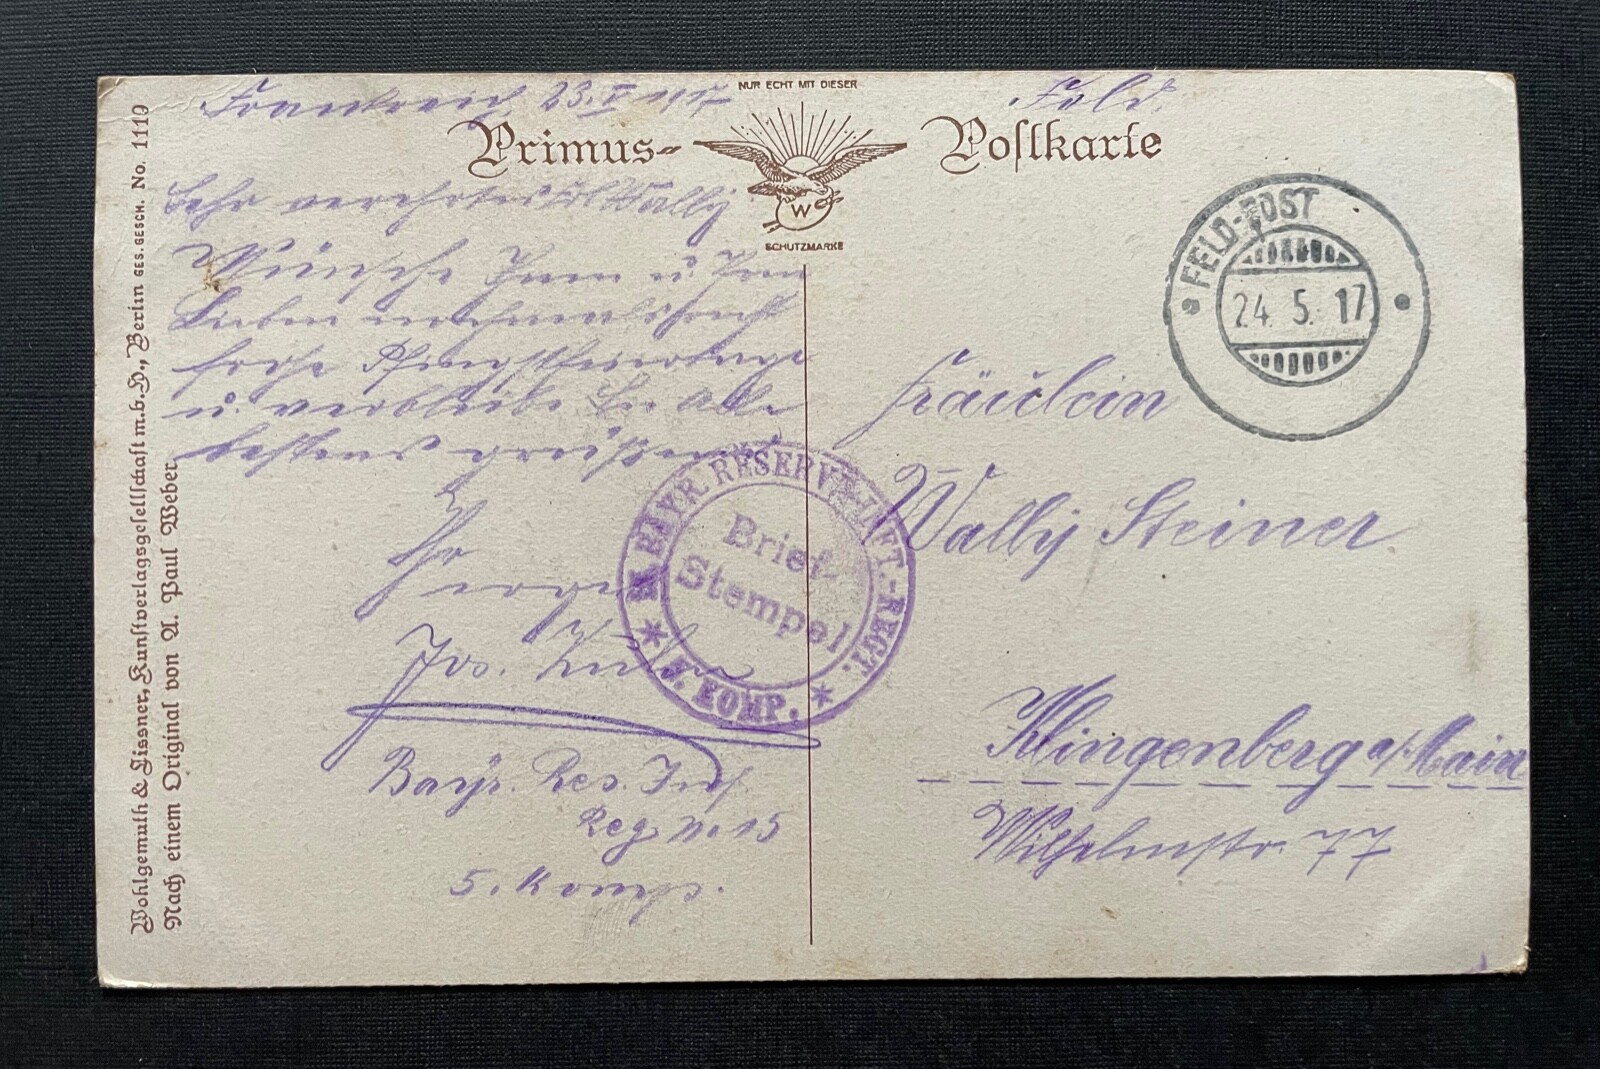 Frankreich, 23. V 1917
Feld.
NUR ECHT MIT DIESER
Primus-
Poſtkarte
W
SCHUTZMARKE
FELD-POST
24. 5. 17
Sehr verehrtes Frl Wally
Wünsche Ihnen u Ihren
Lieben nochmals recht
frohe Pfingstfeiertage
u. verbleibe Sie Alle
bestens grüßend
Ihr
Jos.
Bayr. Res. Inf
Reg No 15
5. Komp.
Fräulein
Wally Steiner.
Klingenberg a/Main
Wilhelmstr. 77
BAYR. RESERVE-INFT.-REGT.
Brief-
Stempel
KOMP.
Wohlgemuth & Liſſner, Kunſtverlagsgeſellſchaft m.b.H., Berlin GES.GESCH. No. 1110
Nach einem Original von A. Paul Weber